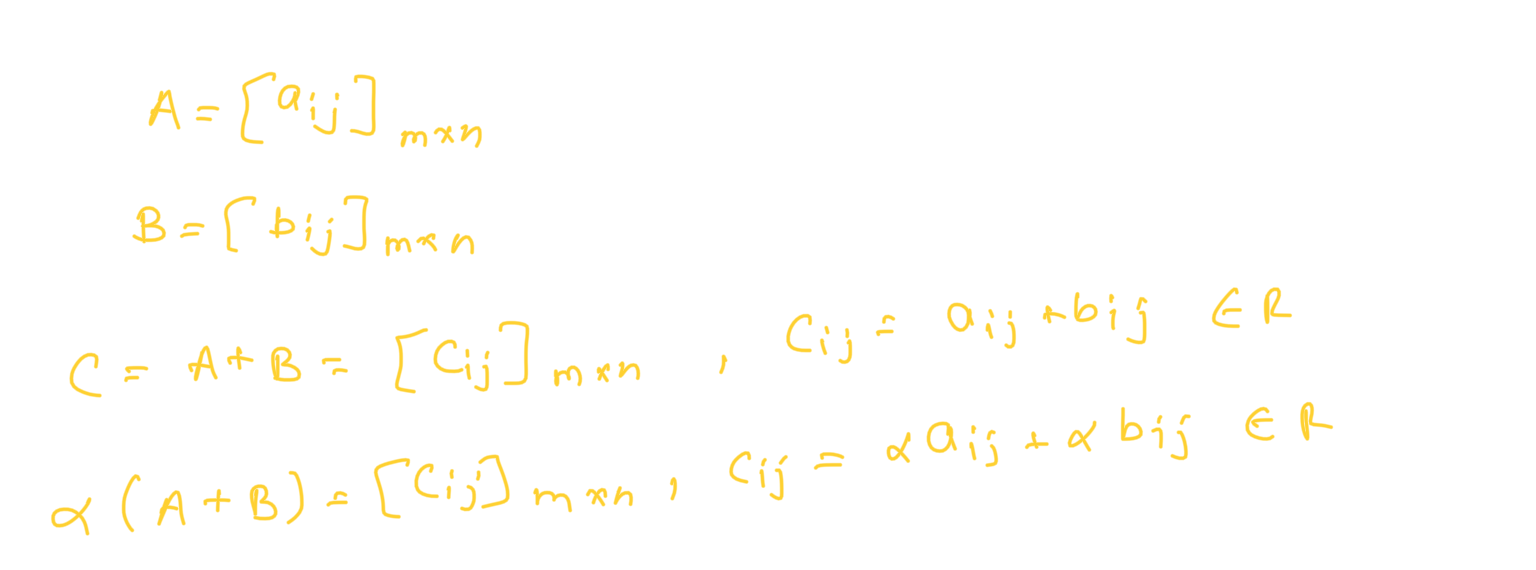 A = [aij] m×n
B = [bij] m×n
C = A + B = [Cij] m×n , Cij = aij + bij ∈ R
α (A + B) = [Cij] m×n , Cij = α aij + α bij ∈ R